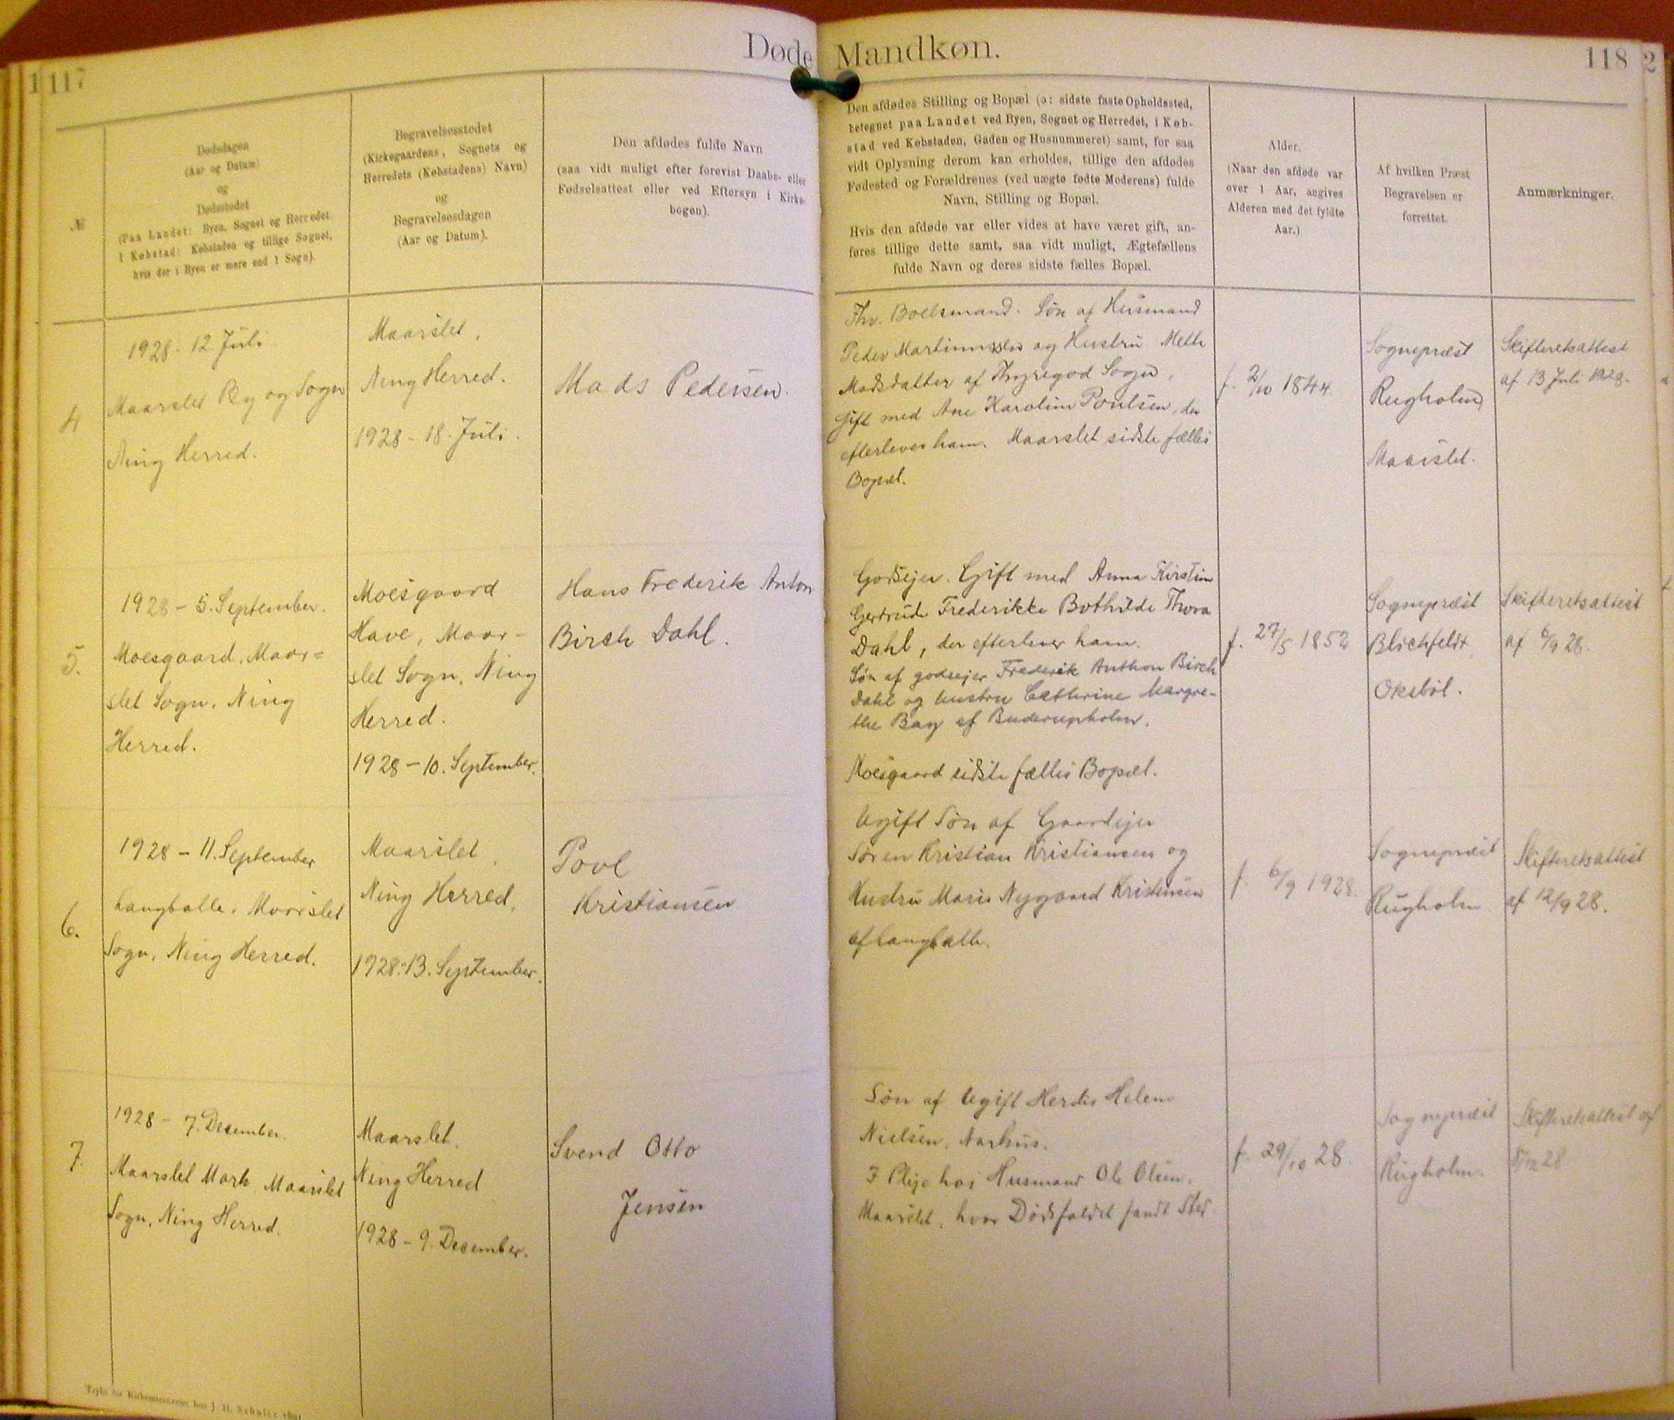 1 117
Døde Mandkøn.
118 2
№
Dødsdagen
(Aar og Datum)
og
Dødsstedet
(Paa Landet: Byen, Sognet og Herredet.
I Købstad: Købstaden og tillige Sognet,
hvis der i Byen er mere end 1 Sogn).
Begravelsesstedet
(Kirkegaardens, Sognets og
Herredets (Købstadens) Navn)
og
Begravelsesdagen
(Aar og Datum).
Den afdødes fulde Navn
(saa vidt muligt efter forevist Daabs- eller
Fødselsattest eller ved Eftersyn i Kirke-
bogen).
Den afdødes Stilling og Bopæl (ɔ: sidste faste Opholdssted,
betegnet paa Landet ved Byen, Sognet og Herredet, i Køb-
stad ved Købstaden, Gaden og Husnummeret) samt, for saa
vidt Oplysning derom kan erholdes, tillige den afdødes
Fødested og Forældrenes (ved uægte fødte Moderens) fulde
Navn, Stilling og Bopæl.
Hvis den afdøde var eller vides at have været gift, an-
føres tillige dette samt, saa vidt muligt, Ægtefællens
fulde Navn og deres sidste fælles Bopæl.
Alder.
(Naar den afdøde var
over 1 Aar, angives
Alderen med det fyldte
Aar.)
Af hvilken Præst
Begravelsen er
forrettet.
Anmærkninger.
4
1928 - 12 Juli
Maarslet By og Sogn
Ning Herred.
Maarslet,
Ning Herred.
1928 - 18. Juli.
Mads Pedersen.
Fhv. Boelsmand. Søn af Husmand
Peder Martinussen og Hustru Mette
Madsdatter af Thyregod Sogn,
Gift med Ane Karoline Poulsen, der
efterlever ham. Maarslet sidste fælles
Bopæl.
f. 2/10 1844.
Sognepræst
Rugholm
Maarslet.
Skifteretsattest
af 13 Juli 1928.
5.
1928 - 5. September.
Moesgaard, Maar=
slet Sogn, Ning
Herred.
Moesgaard
Have, Maar-
slet Sogn, Ning
Herred.
1928 - 10. September.
Hans Frederik Anton
Birch Dahl.
Godsejer. Gift med Anna Kirstine
Gertrude Frederikke Bothilde Thora
Dahl, der efterlever ham.
Søn af godsejer Frederik Anthon Birch
Dahl og hustru Cathrine Margre-
the Bay af Buderupholm.
Moesgaard sidste fælles Bopæl.
f. 27/5 1852
Sognepræst
Blichfeldt
Oksbøl.
Skifteretsattest
af 6/9 28.
6.
1928 - 11. September
Langballe, Maarslet
Sogn, Ning Herred.
Maarslet,
Ning Herred,
1928 - 13. September.
Povl
Kristiansen
Ugift Søn af Gaardejer
Søren Kristian Kristiansen og
Hustru Marie Nygaard Kristensen
af Langballe.
f. 6/9 1928.
Sognepræst
Rugholm
Skifteretsattest
af 12/9 28.
7.
1928 - 7. December.
Maarslet Mark, Maarslet
Sogn, Ning Herred.
Maarslet.
Ning Herred
1928 - 9. December.
Svend Otto
Jensen
Søn af Ugift Herdis Helene
Nielsen, Aarhus.
I Pleje hos Husmand Ole Olsen,
Maarslet, hvor Dødsfaldet fandt Sted
f. 29/10 28.
Sognepræst
Rugholm.
Skifteretsattest af
8/12 28